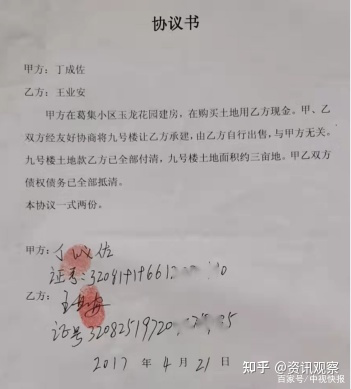 协议书
甲方：丁成佐
乙方：王业安
甲方在葛集小区玉龙花园建房，在购买土地用乙方现金。甲、乙
双方经友好协商将九号楼让乙方承建，由乙方自行出售，与甲方无关。
九号楼土地款乙方已全部付清，九号楼土地面积约三亩地。甲乙双方
债权债务已全部抵清。
本协议一式两份。
甲方：丁成佐
证号：3208191966
乙方：王业安
证号32082519720
2017年4月21日
知乎 @资讯观察
百家号/中视快报